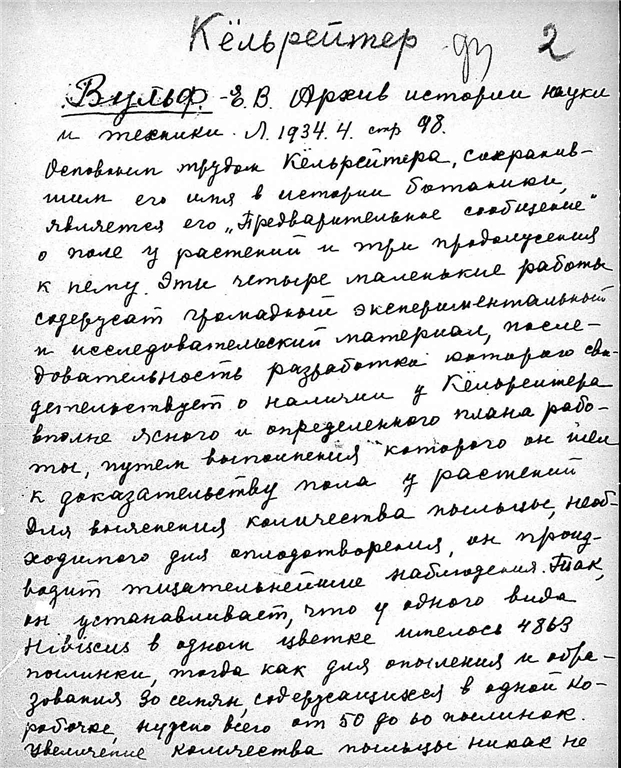 Кёльрейтер 2
Вульф. - Е. В. Архив истории науки
и техники. Л. 1934. 4. стр 98.
Основным трудом Кёльрейтера, сохранив-
шим его имя в истории ботаники,
является его „Предварительное сообщение"
о поле у растений и три продолжения
к нему. Эти четыре маленькие работы
содержат громадный экспериментальный
и исследовательский материал, после-
довательность разработки которого сви-
детельствует о наличии у Кёльрейтера
вполне ясного и определенного плана рабо-
ты, путем выполнения которого он шел
к доказательству пола у растений
Для выяснения количества пыльцы, необ-
ходимого для оплодотворения, он произ-
водит тщательнейшие наблюдения. Так,
он устанавливает, что у одного вида
Hibiscus в одном цветке имелось 4863
пылинки, тогда как для опыления и обра-
зования 30 семян, содержащихся в одной ко-
робочке, нужно всего от 50 до 60 пылинок.
Увеличение количества пыльцы никак не